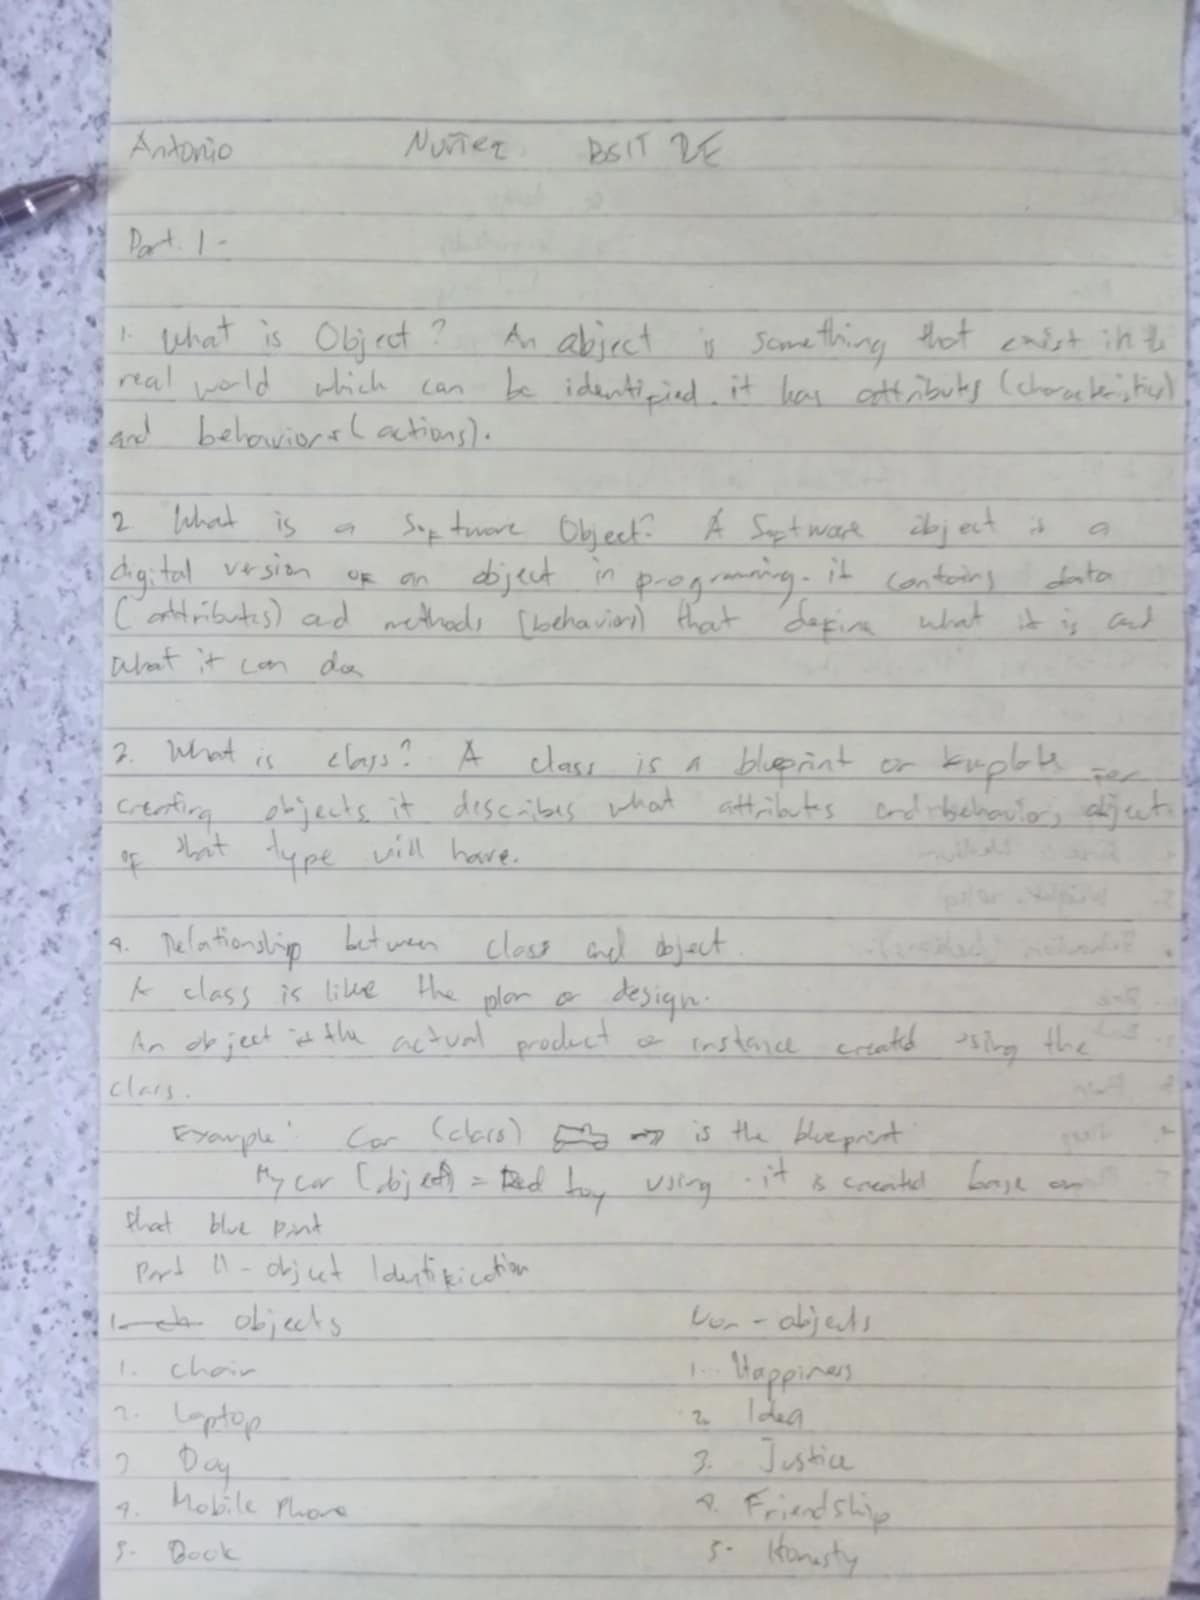 Antonio Nuñez BSIT 2E
Part. 1-
1. What is Object? An object is something that exist in
real world which can be identified. it has attributs (characteristics)
and behaviors (actions).
2 What is a Software Object? A Software object is a
digital version of an object in programming. it contains data
(attributes) and methods (behaviors) that define what it is and
what it can do
3. What is class? A class is a blueprint or template for
creating objects. it describes what attributes and behaviors object
of that type will have.
4. Relationship between class and object.
A class is like the plan or design.
An object is the actual product or instance created using the
class.
Example: Car (class) → is the blueprint
My car (object) = Red using it is created base on
that blue print
Part II - object Identification
objects Non-objects
1. Chair 1. Happiness
2. Laptop 2 Idea
3 Dog 3. Justice
4. Mobile Phone 4. Friendship
5. Book 5. Honesty